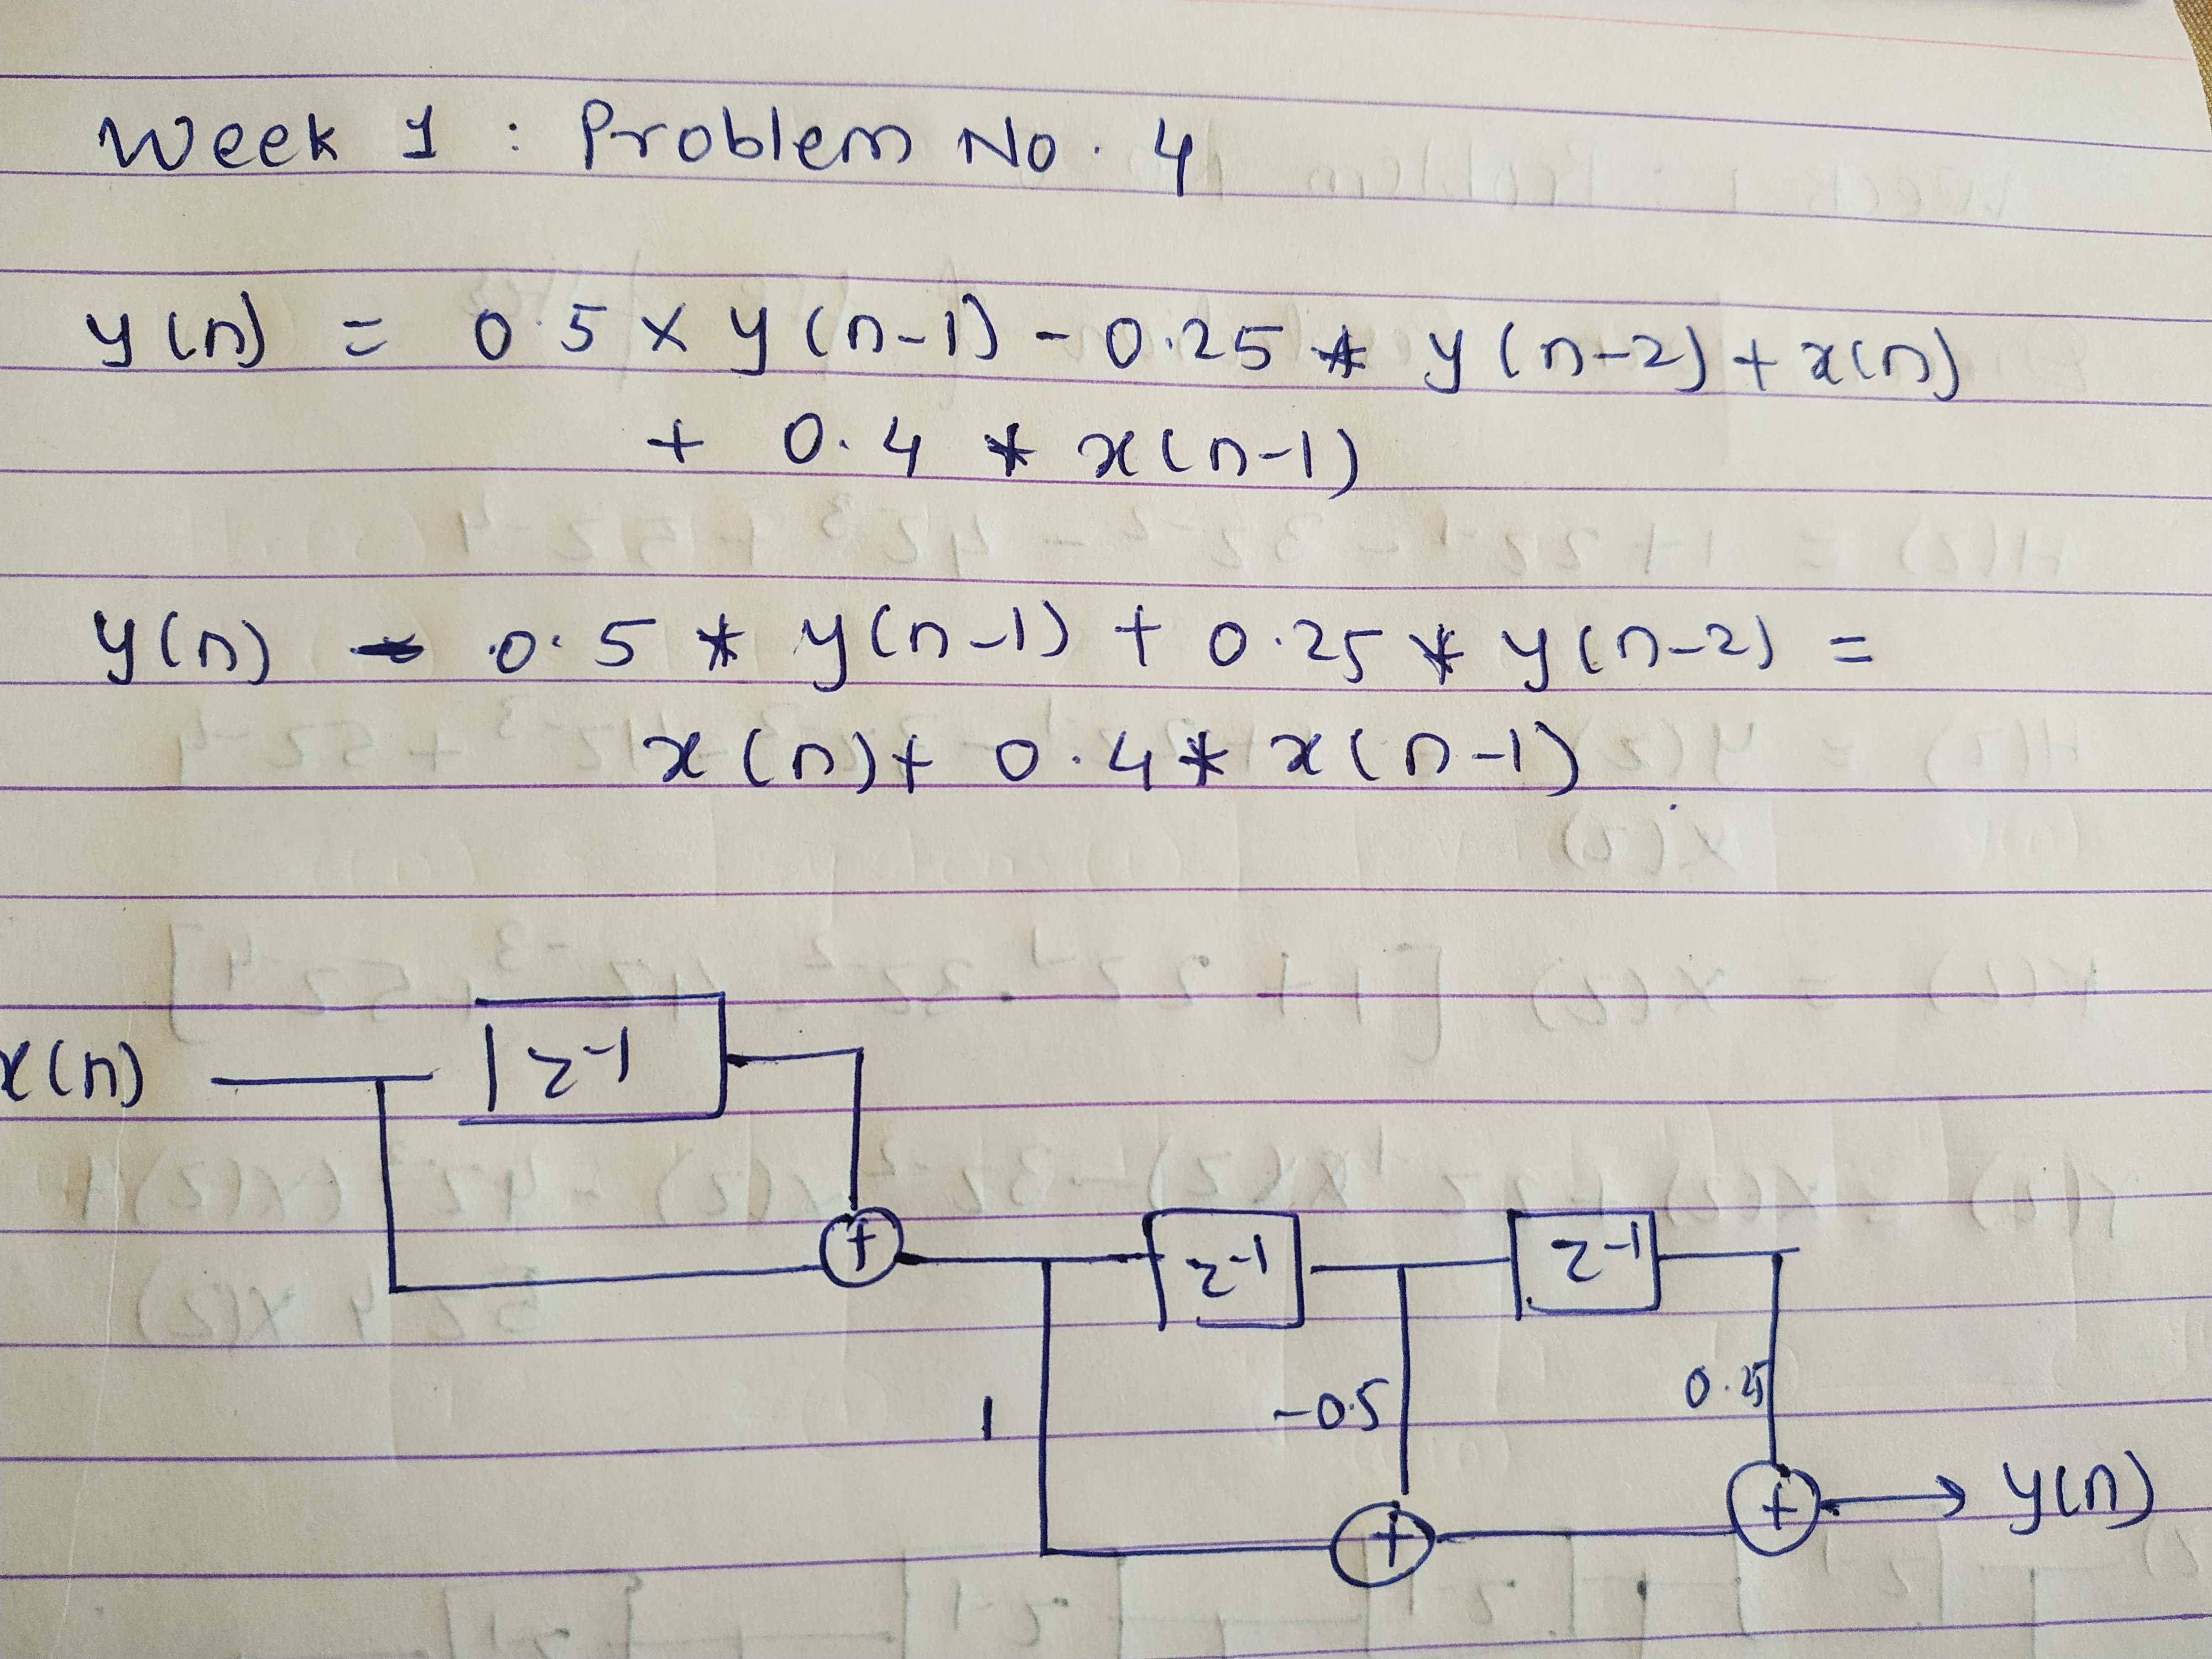 Week 1 : Problem No. 4
y(n) = 0.5 x y(n-1) - 0.25 * y(n-2) + x(n)
+ 0.4 * x(n-1)
y(n) - 0.5 * y(n-1) + 0.25 * y(n-2) =
x(n) + 0.4 * x(n-1)
x(n) z-1
+
z-1 z-1
1 -0.5 0.25
+ + y(n)